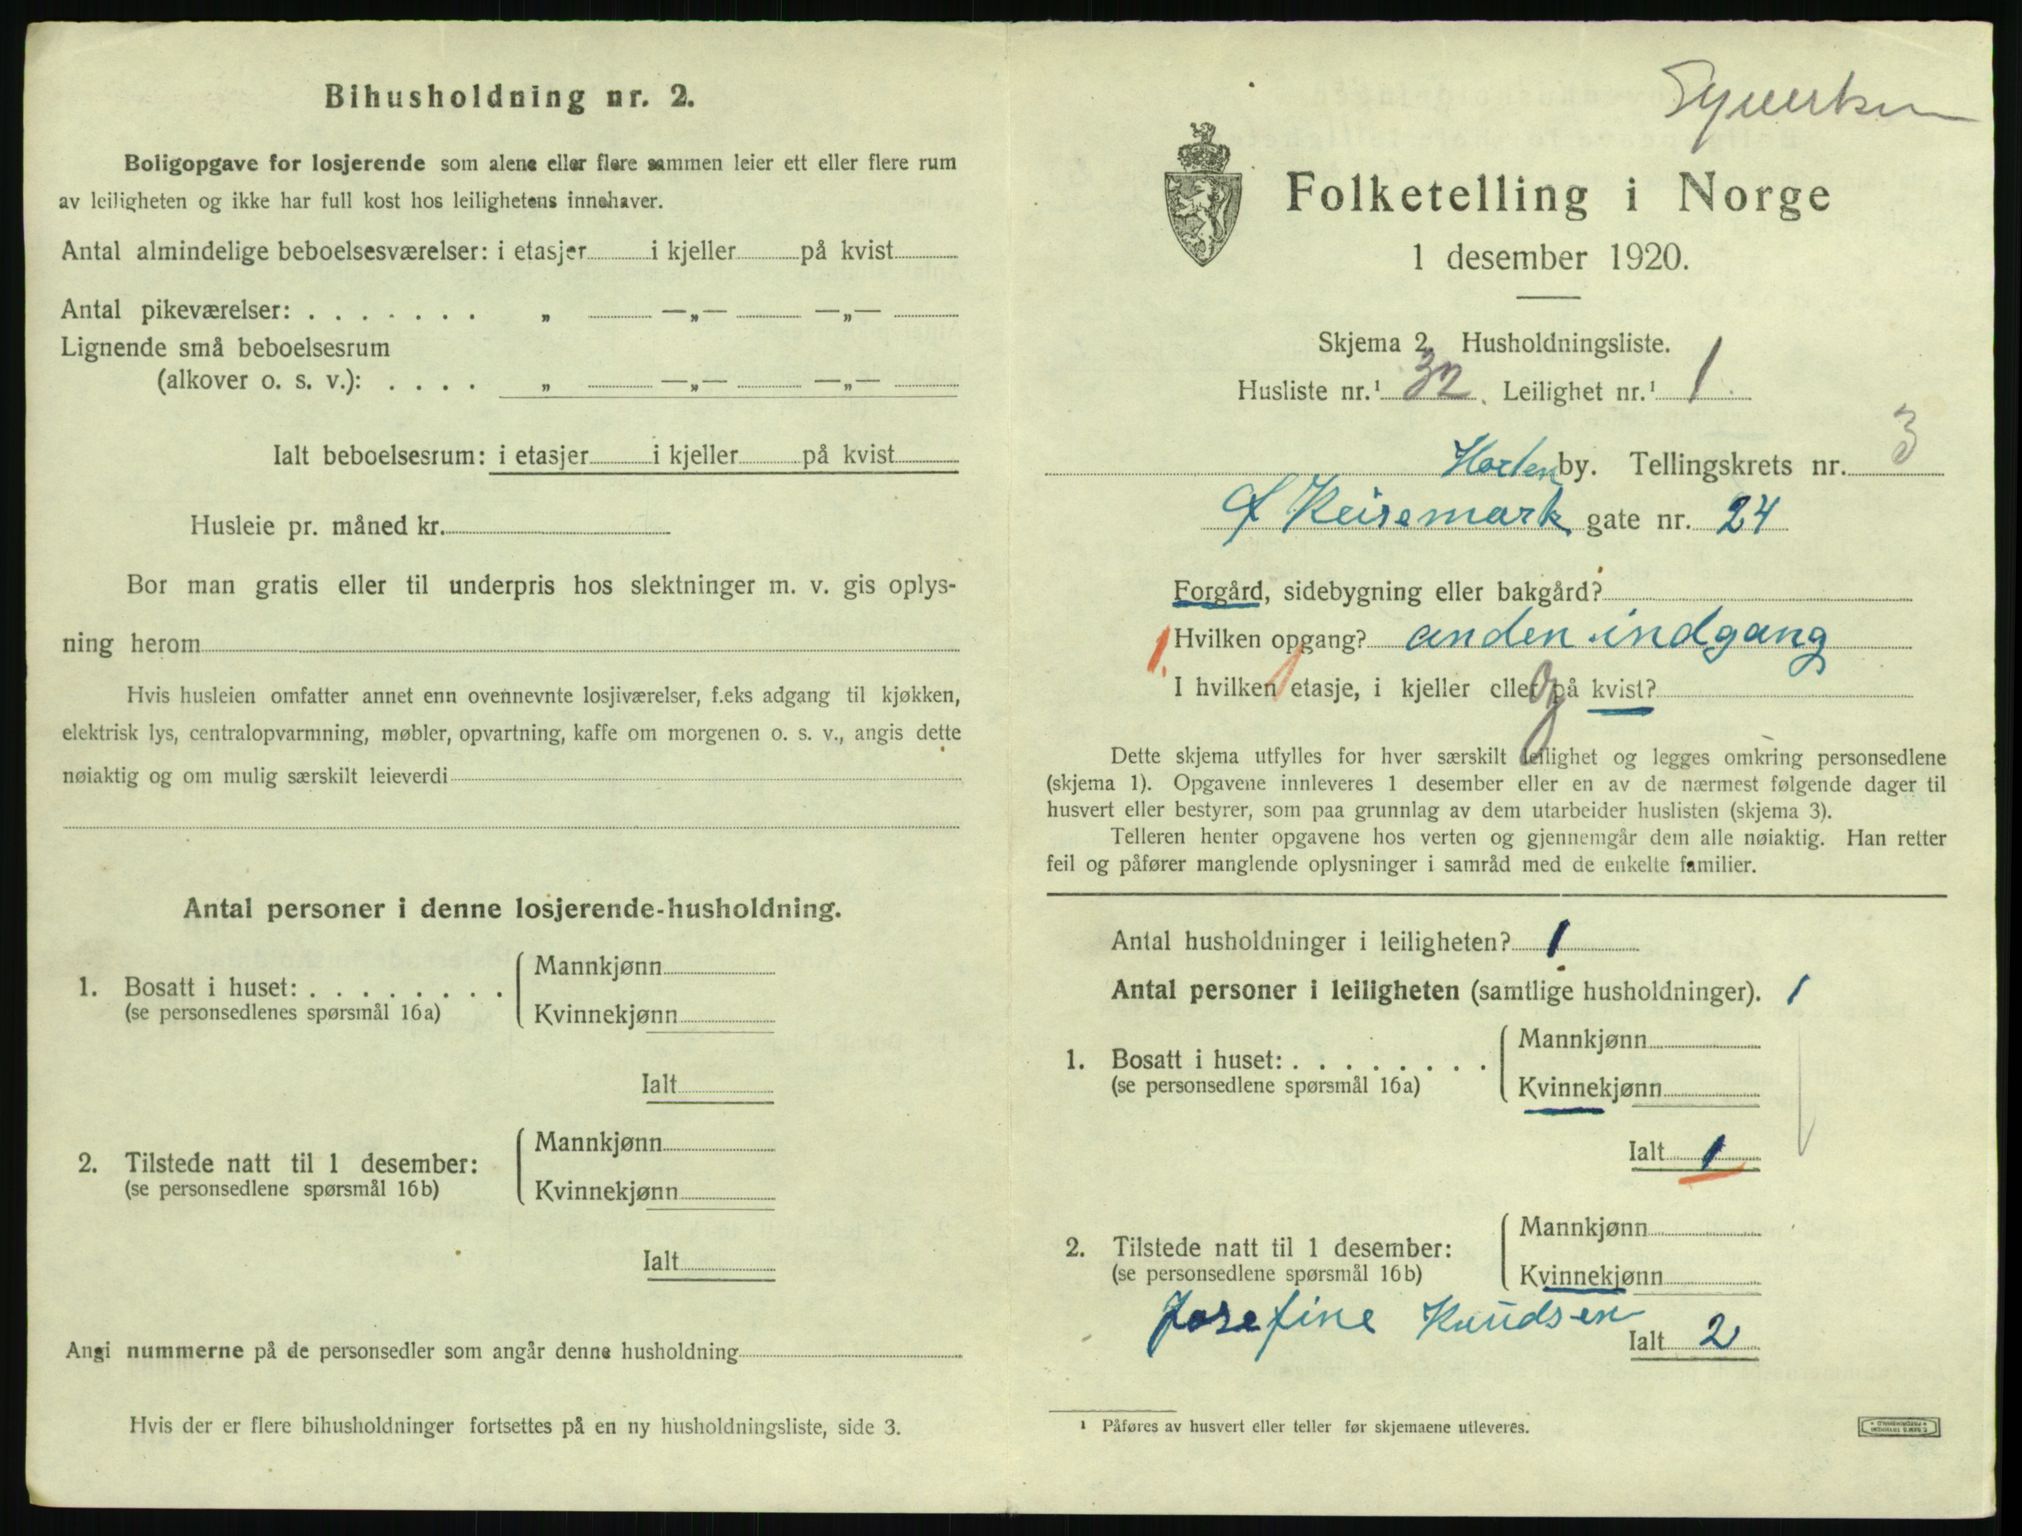 Bihusholdning nr. 2.
Boligopgave for losjerende som alene eller flere sammen leier ett eller flere rum
av leiligheten og ikke har full kost hos leilighetens innehaver.
Antal almindelige beboelsesværelser: i etasjer i kjeller på kvist
Antal pikeværelser: . . . . . . . „ —„— —„—
Lignende små beboelsesrum
(alkover o. s. v.): . . . . „ —„— —„—
Ialt beboelsesrum: i etasjer i kjeller på kvist
Husleie pr. måned kr.
Bor man gratis eller til underpris hos slektninger m. v. gis oplys-
ning herom
Hvis husleien omfatter annet enn ovennevnte losjiværelser, f.eks adgang til kjøkken,
elektrisk lys, centralopvarmning, møbler, opvartning, kaffe om morgenen o. s. v., angis dette
nøiaktig og om mulig særskilt leieverdi
Antal personer i denne losjerende-husholdning.
1. Bosatt i huset: . . . . . . . . Mannkjønn
(se personsedlenes spørsmål 16a) Kvinnekjønn
Ialt
2. Tilstede natt til 1 desember: Mannkjønn
(se personsedlene spørsmål 16b) Kvinnekjønn
Ialt
Angi nummerne på de personsedler som angår denne husholdning
Hvis der er flere bihusholdninger fortsettes på en ny husholdningsliste, side 3.
Folketelling i Norge
1 desember 1920.
Skjema 2. Husholdningsliste.
Husliste nr.¹ 32. Leilighet nr.¹ 1
Horten by. Tellingskrets nr. 3
Keisemark gate nr. 24
Forgård, sidebygning eller bakgård?
1. Hvilken opgang? anden indgang
I hvilken etasje, i kjeller eller på kvist?
Dette skjema utfylles for hver særskilt leilighet og legges omkring personsedlene
(skjema 1). Opgavene innleveres 1 desember eller en av de nærmest følgende dager til
husvert eller bestyrer, som paa grunnlag av dem utarbeider huslisten (skjema 3).
Telleren henter opgavene hos verten og gjennemgår dem alle nøiaktig. Han retter
feil og påfører manglende oplysninger i samråd med de enkelte familier.
Antal husholdninger i leiligheten? 1
Antal personer i leiligheten (samtlige husholdninger). 1
1. Bosatt i huset: . . . . . . . . Mannkjønn
(se personsedlene spørsmål 16a) Kvinnekjønn
Ialt 1
2. Tilstede natt til 1 desember: Mannkjønn
(se personsedlene spørsmål 16b) Kvinnekjønn
Josefine Knudsen
Ialt 2
¹ Påføres av husvert eller teller før skjemaene utleveres.